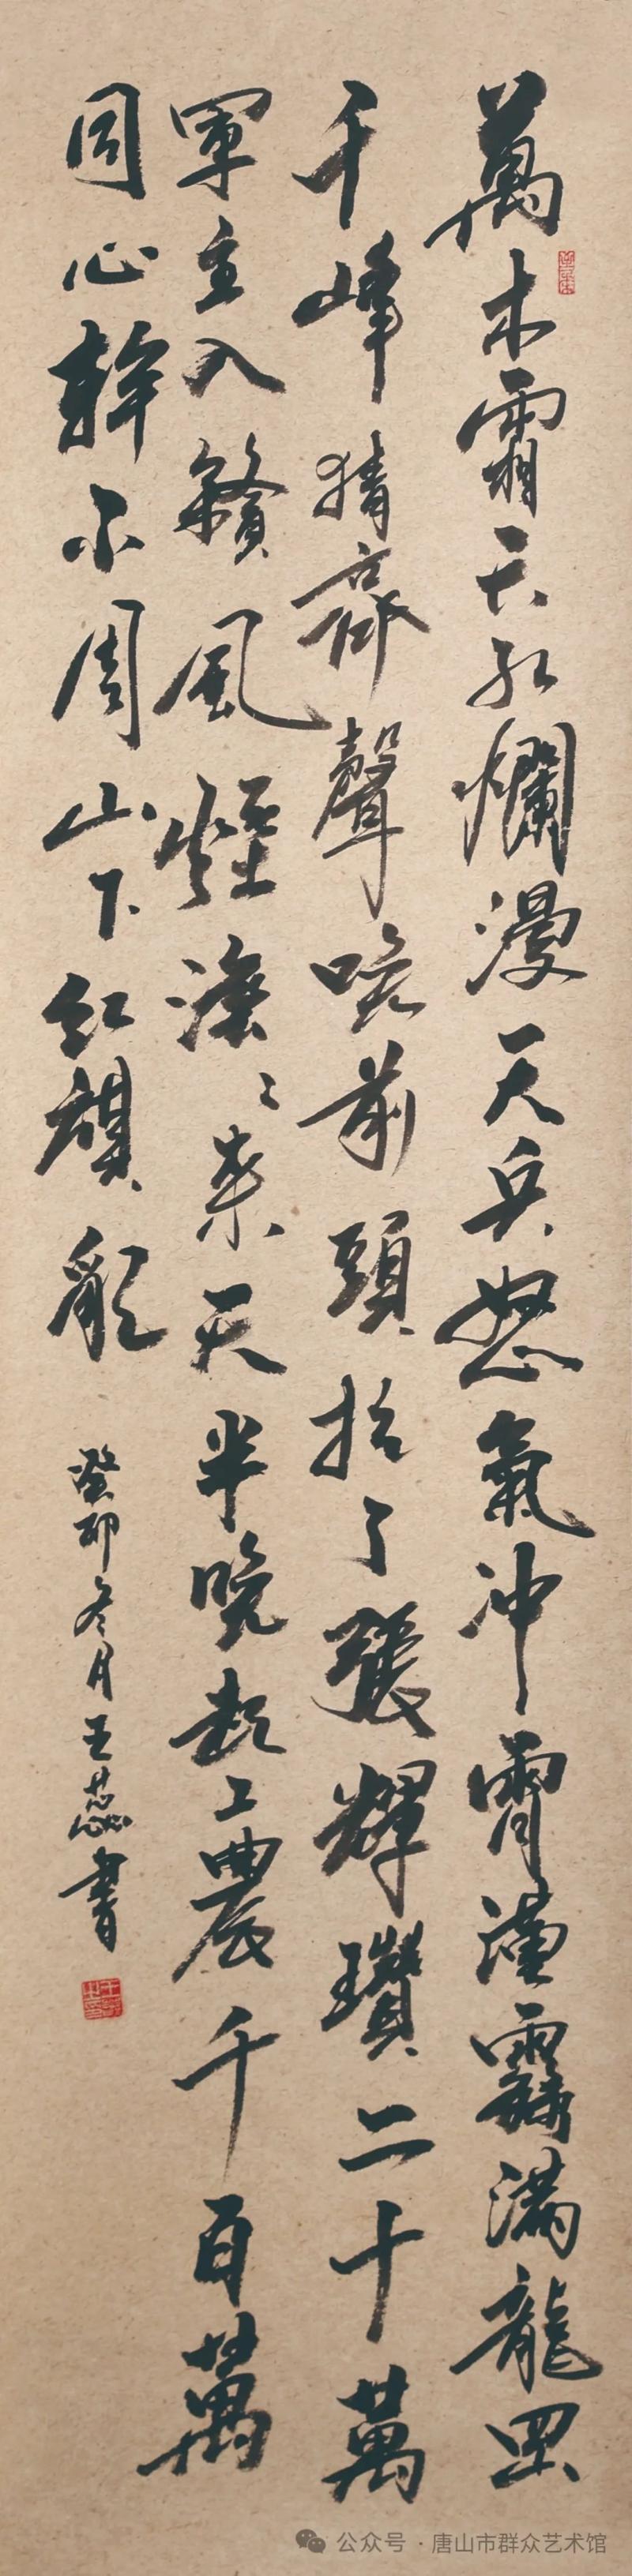 萬木霜天紅爛漫天兵怒氣沖霄漢霧滿龍岡
千嶂暗齊聲喚前頭捉了張輝瓚二十萬
軍重入贛風煙滾〻來天半喚起工農千百萬
同心幹不周山下紅旗亂
癸卯冬月王蕊書
公众号·唐山市群众艺术馆